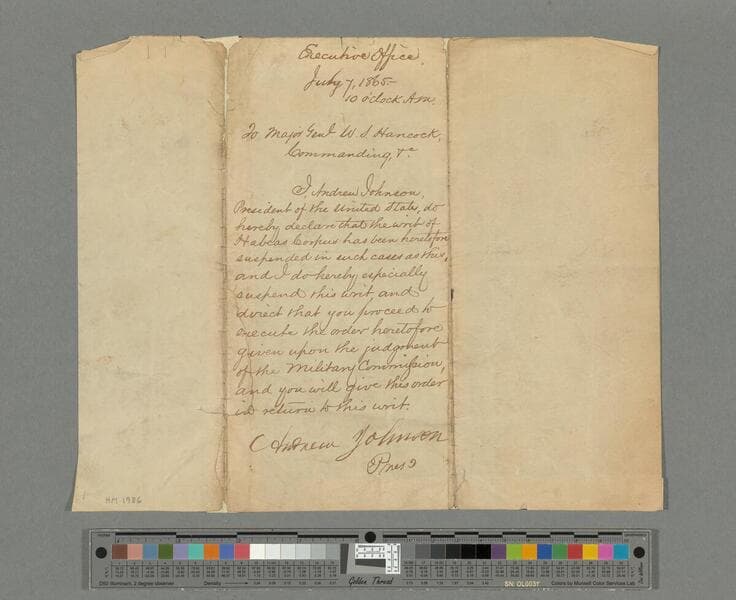 Executive Office.
July 7, 1865.
10 o'clock A.m.
To Major Genl W. S. Hancock,
Commanding, &c.
I, Andrew Johnson,
President of the United States, do
hereby declare that the writ of
Habeas Corpus has been heretofore
suspended in such cases as this,
and I do hereby especially
suspend this writ, and
direct that you proceed to
execute the order heretofore
given upon the judgment
of the Military Commission,
and you will give this order
in return to this writ.
Andrew Johnson
Pres
HM 1986
inches
D50 Illuminant, 2 degree observer
Density
Golden Thread
SN: OL0031
Colors by Munsell Color Services Lab